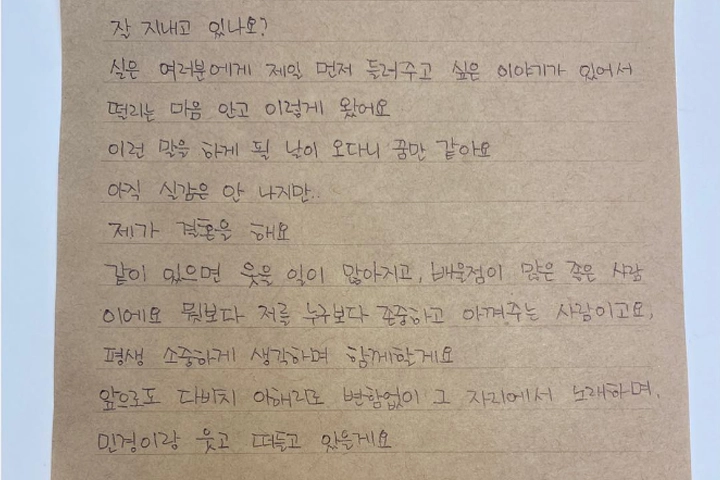 잘 지내고 있나요?
실은 여러분에게 제일 먼저 들려주고 싶은 이야기가 있어서
떨리는 마음 안고 이렇게 왔어요
이런 말을 하게 될 날이 오다니 꿈만 같아요
아직 실감은 안 나지만..
제가 결혼을 해요
같이 있으면 웃을 일이 많아지고, 배울점이 많은 좋은 사람
이에요 뭣보다 저를 누구보다 존중하고 아껴주는 사람이고요,
평생 소중하게 생각하며 함께할게요
앞으로도 다비치 이해리로 변함없이 그 자리에서 노래하며,
민경이랑 웃고 떠들고 있을게요